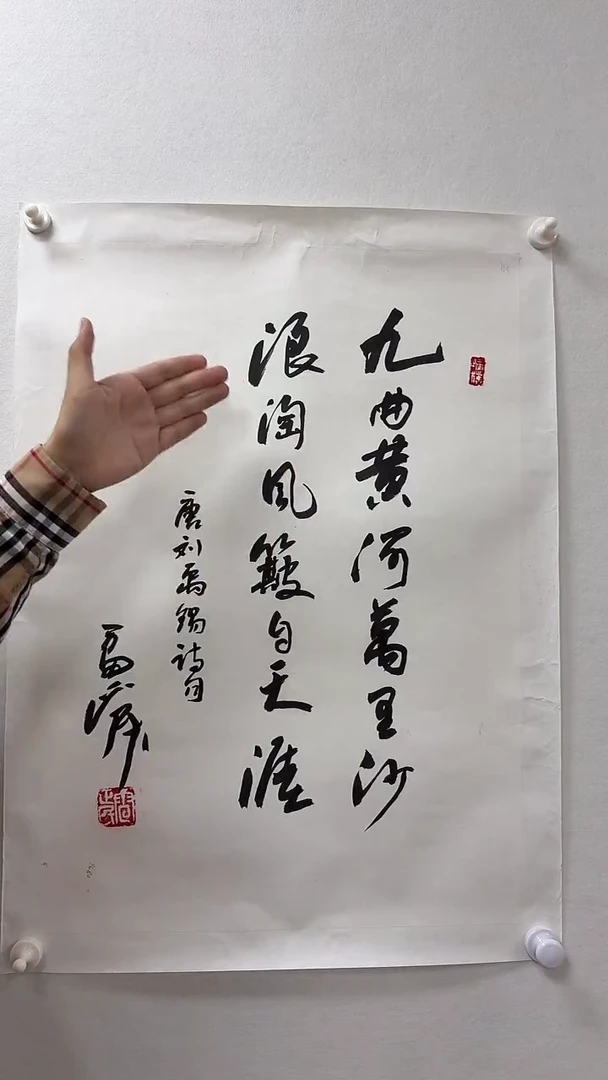 九曲黄河萬里沙
浪淘风簸自天涯
唐刘禹锡诗句